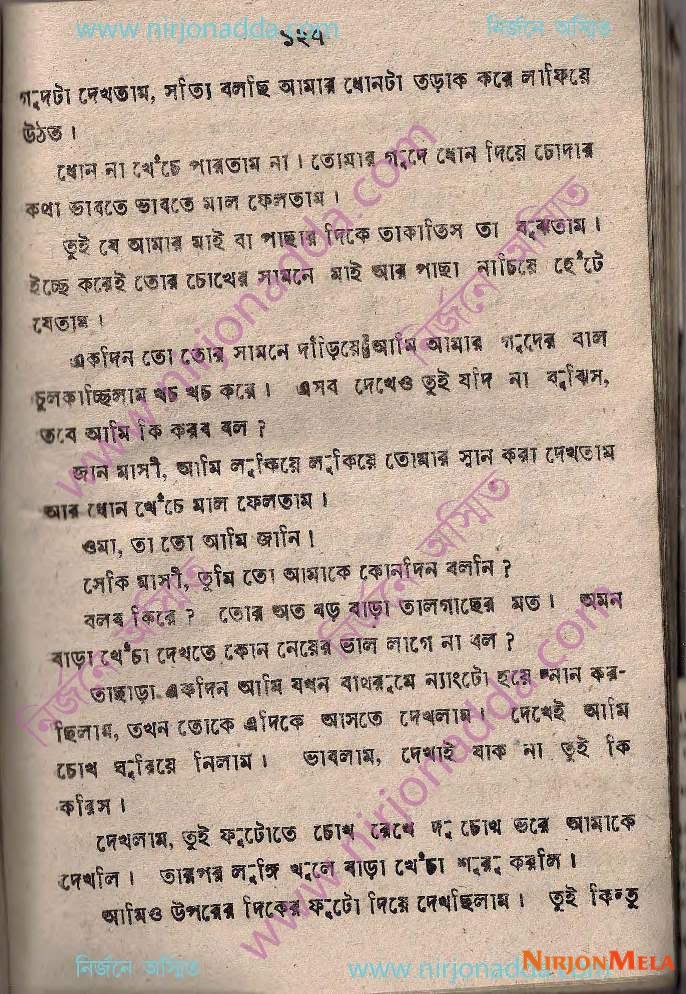 www.nirjonadda.com ১২৭ নির্জনে অস্মিত
গুদটা দেখতাম, সত্যি বলছি আমার ধোনটা তড়াক করে লাফিয়ে
উঠত।
ধোন না খেঁচে পারতাম না। তোমার গুদে ধোন দিয়ে চোদার
কথা ভাবতে ভাবতে মাল ফেলতাম।
তুই যে আমার মাই বা পাছার দিকে তাকাতিস তা বুঝতাম।
ইচ্ছে করেই তোর চোখের সামনে মাই আর পাছা নাচিয়ে হেঁটে
যেতাম।
একদিন তো তোর সামনে দাঁড়িয়ে আমি আমার গুদের বাল
চুলকাচ্ছিলাম খচ খচ করে। এসব দেখেও তুই যদি না বুঝিস,
তবে আমি কি করব বল ?
জান মাসী, আমি লুকিয়ে লুকিয়ে তোমার স্নান করা দেখতাম
আর ধোন খেঁচে মাল ফেলতাম।
ওমা, তা তো আমি জানি।
সেকি মাসী, তুমি তো আমাকে কোনদিন বলনি ?
বলব কিরে ? তোর অত বড় বাড়া তালগাছের মত। অমন
বাড়া খেঁচা দেখতে কোন মেয়ের ভাল লাগে না বল ?
তাছাড়া একদিন আমি যখন বাথরুমে ন্যাংটো হয়ে স্নান কর-
ছিলাম, তখন তোকে এদিকে আসতে দেখলাম। দেখেই আমি
চোখ ঘুরিয়ে নিলাম। ভাবলাম, দেখাই যাক না তুই কি
করিস।
দেখলাম, তুই ফুটোতে চোখ রেখে দু চোখ ভরে আমাকে
দেখলি। তারপর লুঙ্গি খুলে বাড়া খেঁচা শুরু করলি।
আমিও উপরের দিকের ফুটো দিয়ে দেখছিলাম। তুই কিন্তু
www.nirjonadda.com নির্জনে অস্মিত
www.nirjonadda.com নির্জনে অস্মিত
NIRJONMELA
নির্জনে অস্মিত www.nirjonadda.com